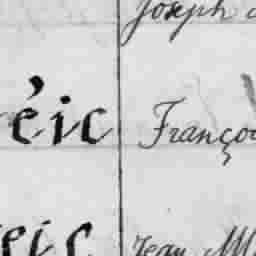 Joseph
éic Franço
eic Jean M